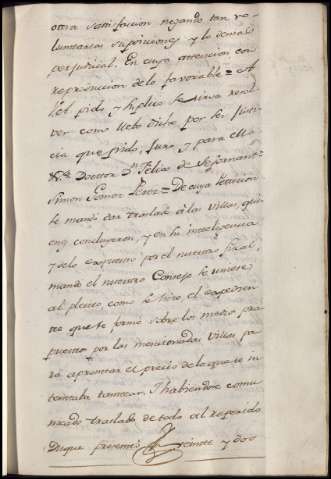 otra satisfacion negando tan vo-
luntarias suposiciones y lo demas
perjudicial. En cuya atencion con
reproducion de lo favorable = A
pido y suplico se sirva resol-
ver como llebo dicho por ser Justi-
cia que pido, Juro y para ello
Doctor Dn Felix de
Simon Gomez Perez = De cuya peticion
se mandó dar traslado á las villas, quie-
nes concluyeron, y en su inteligencia
y de lo expuesto por el nuestro fiscal,
mandó el nuestro Consejo se uniese
al pleito, como se hizo, el expedien-
te que se formó sobre los medios pro-
puestos por las mencionadas villas pa-
ra aprontar el precio de lo que se in-
tentaba tantear. I habiendose comu-
nicado traslado de todo al referido
Duque presentó veinte y dos